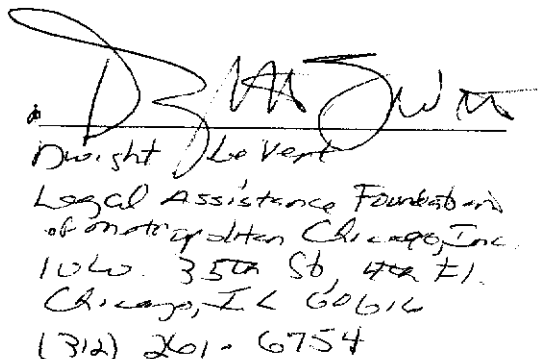 Dwight LeVert
Legal Assistance Foundation
of Metropolitan Chicago, Inc.
10 W. 35th St, 4th Fl.
Chicago, IL 60616
(312) 261-6754